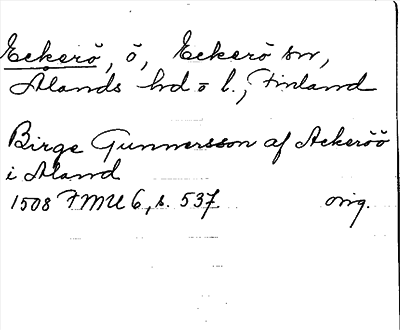 Eckerö, ö, Eckerö sn,
Ålands hd o l., Finland
Birge Gunnersson af Ackeröö
i Aland
1508 FMU 6, s. 537 orig.